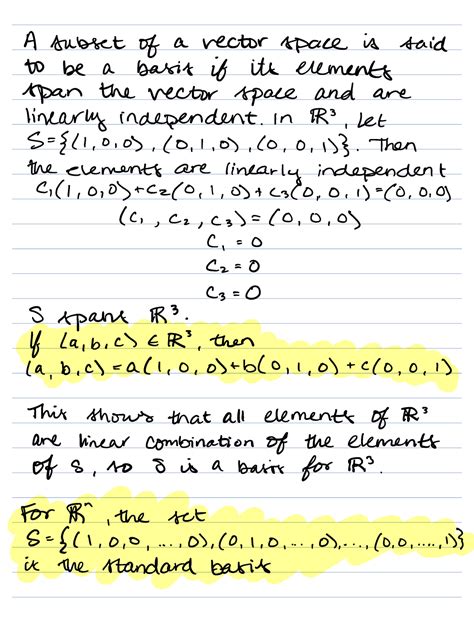 A subset of a vector space is said
to be a basis if its elements
span the vector space and are
linearly independent. In ℝ³, let
S={(1,0,0),(0,1,0),(0,0,1)}. Then
the elements are linearly independent
C₁(1,0,0)+C₂(0,1,0)+C₃(0,0,1)=(0,0,0)
(C₁,C₂,C₃)=(0,0,0)
C₁=0
C₂=0
C₃=0
S spans ℝ³.
If (a,b,c)∈ℝ³, then
(a,b,c)=a(1,0,0)+b(0,1,0)+c(0,0,1)
This shows that all elements of ℝ³
are linear combination of the elements
of S, so S is a basis for ℝ³.
For ℝⁿ, the set
S={(1,0,0,...,0),(0,1,0,...,0),...,(0,0,...,1)}
is the standard basis